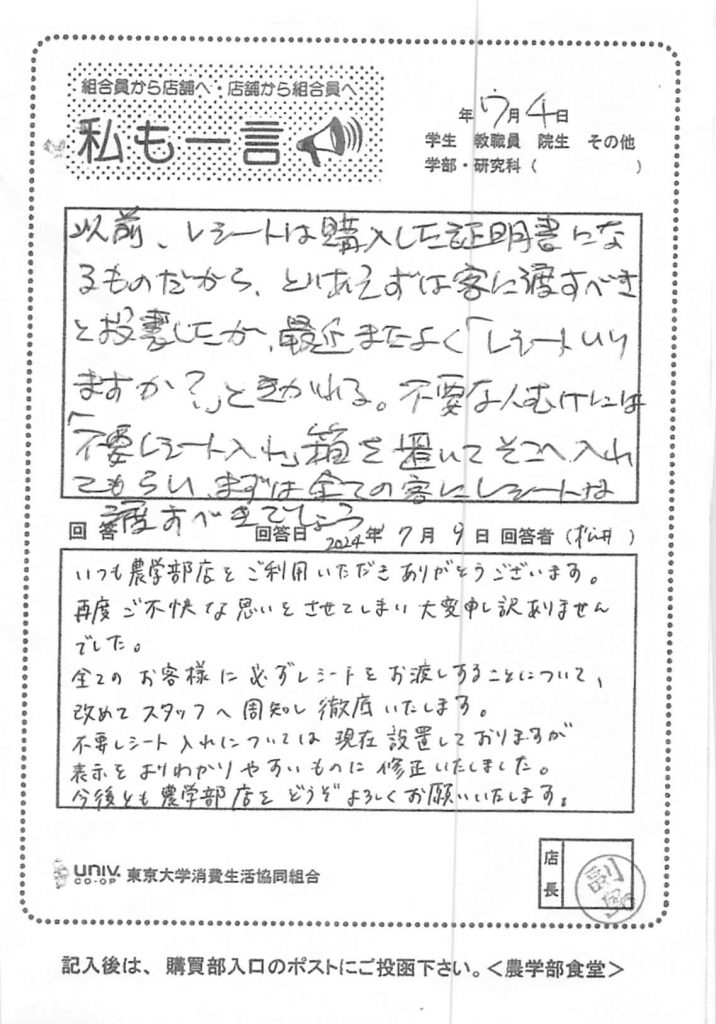 組合員から店舗へ・店舗から組合員へ
私も一言
年 7月 4日
学生 教職員 院生 その他
学部・研究科( )
以前、レシートは購入した証明書にな
るものだから、とりあえずは客に渡すべき
と投書したが、最近またよく「レシートいり
ますか?」ときかれる。不要な人むけには
「不要レシート入れ」箱を置いてそこへ入れ
てもらい、まずは全ての客にレシートは
渡すべきでしょう
回答 回答日 2024年 7月 9日 回答者(松井)
いつも農学部店をご利用いただきありがとうございます。
再度ご不快な思いをさせてしまい大変申し訳ありません
でした。
全てのお客様に必ずレシートをお渡しすることについて、
改めてスタッフへ周知し徹底いたします。
不要レシート入れについては現在設置しておりますが
表示をよりわかりやすいものに修正いたしました。
今後とも農学部店をどうぞよろしくお願いいたします。
univ. CO-OP 東京大学消費生活協同組合
店長
記入後は、購買部入口のポストにご投函下さい。<農学部食堂>